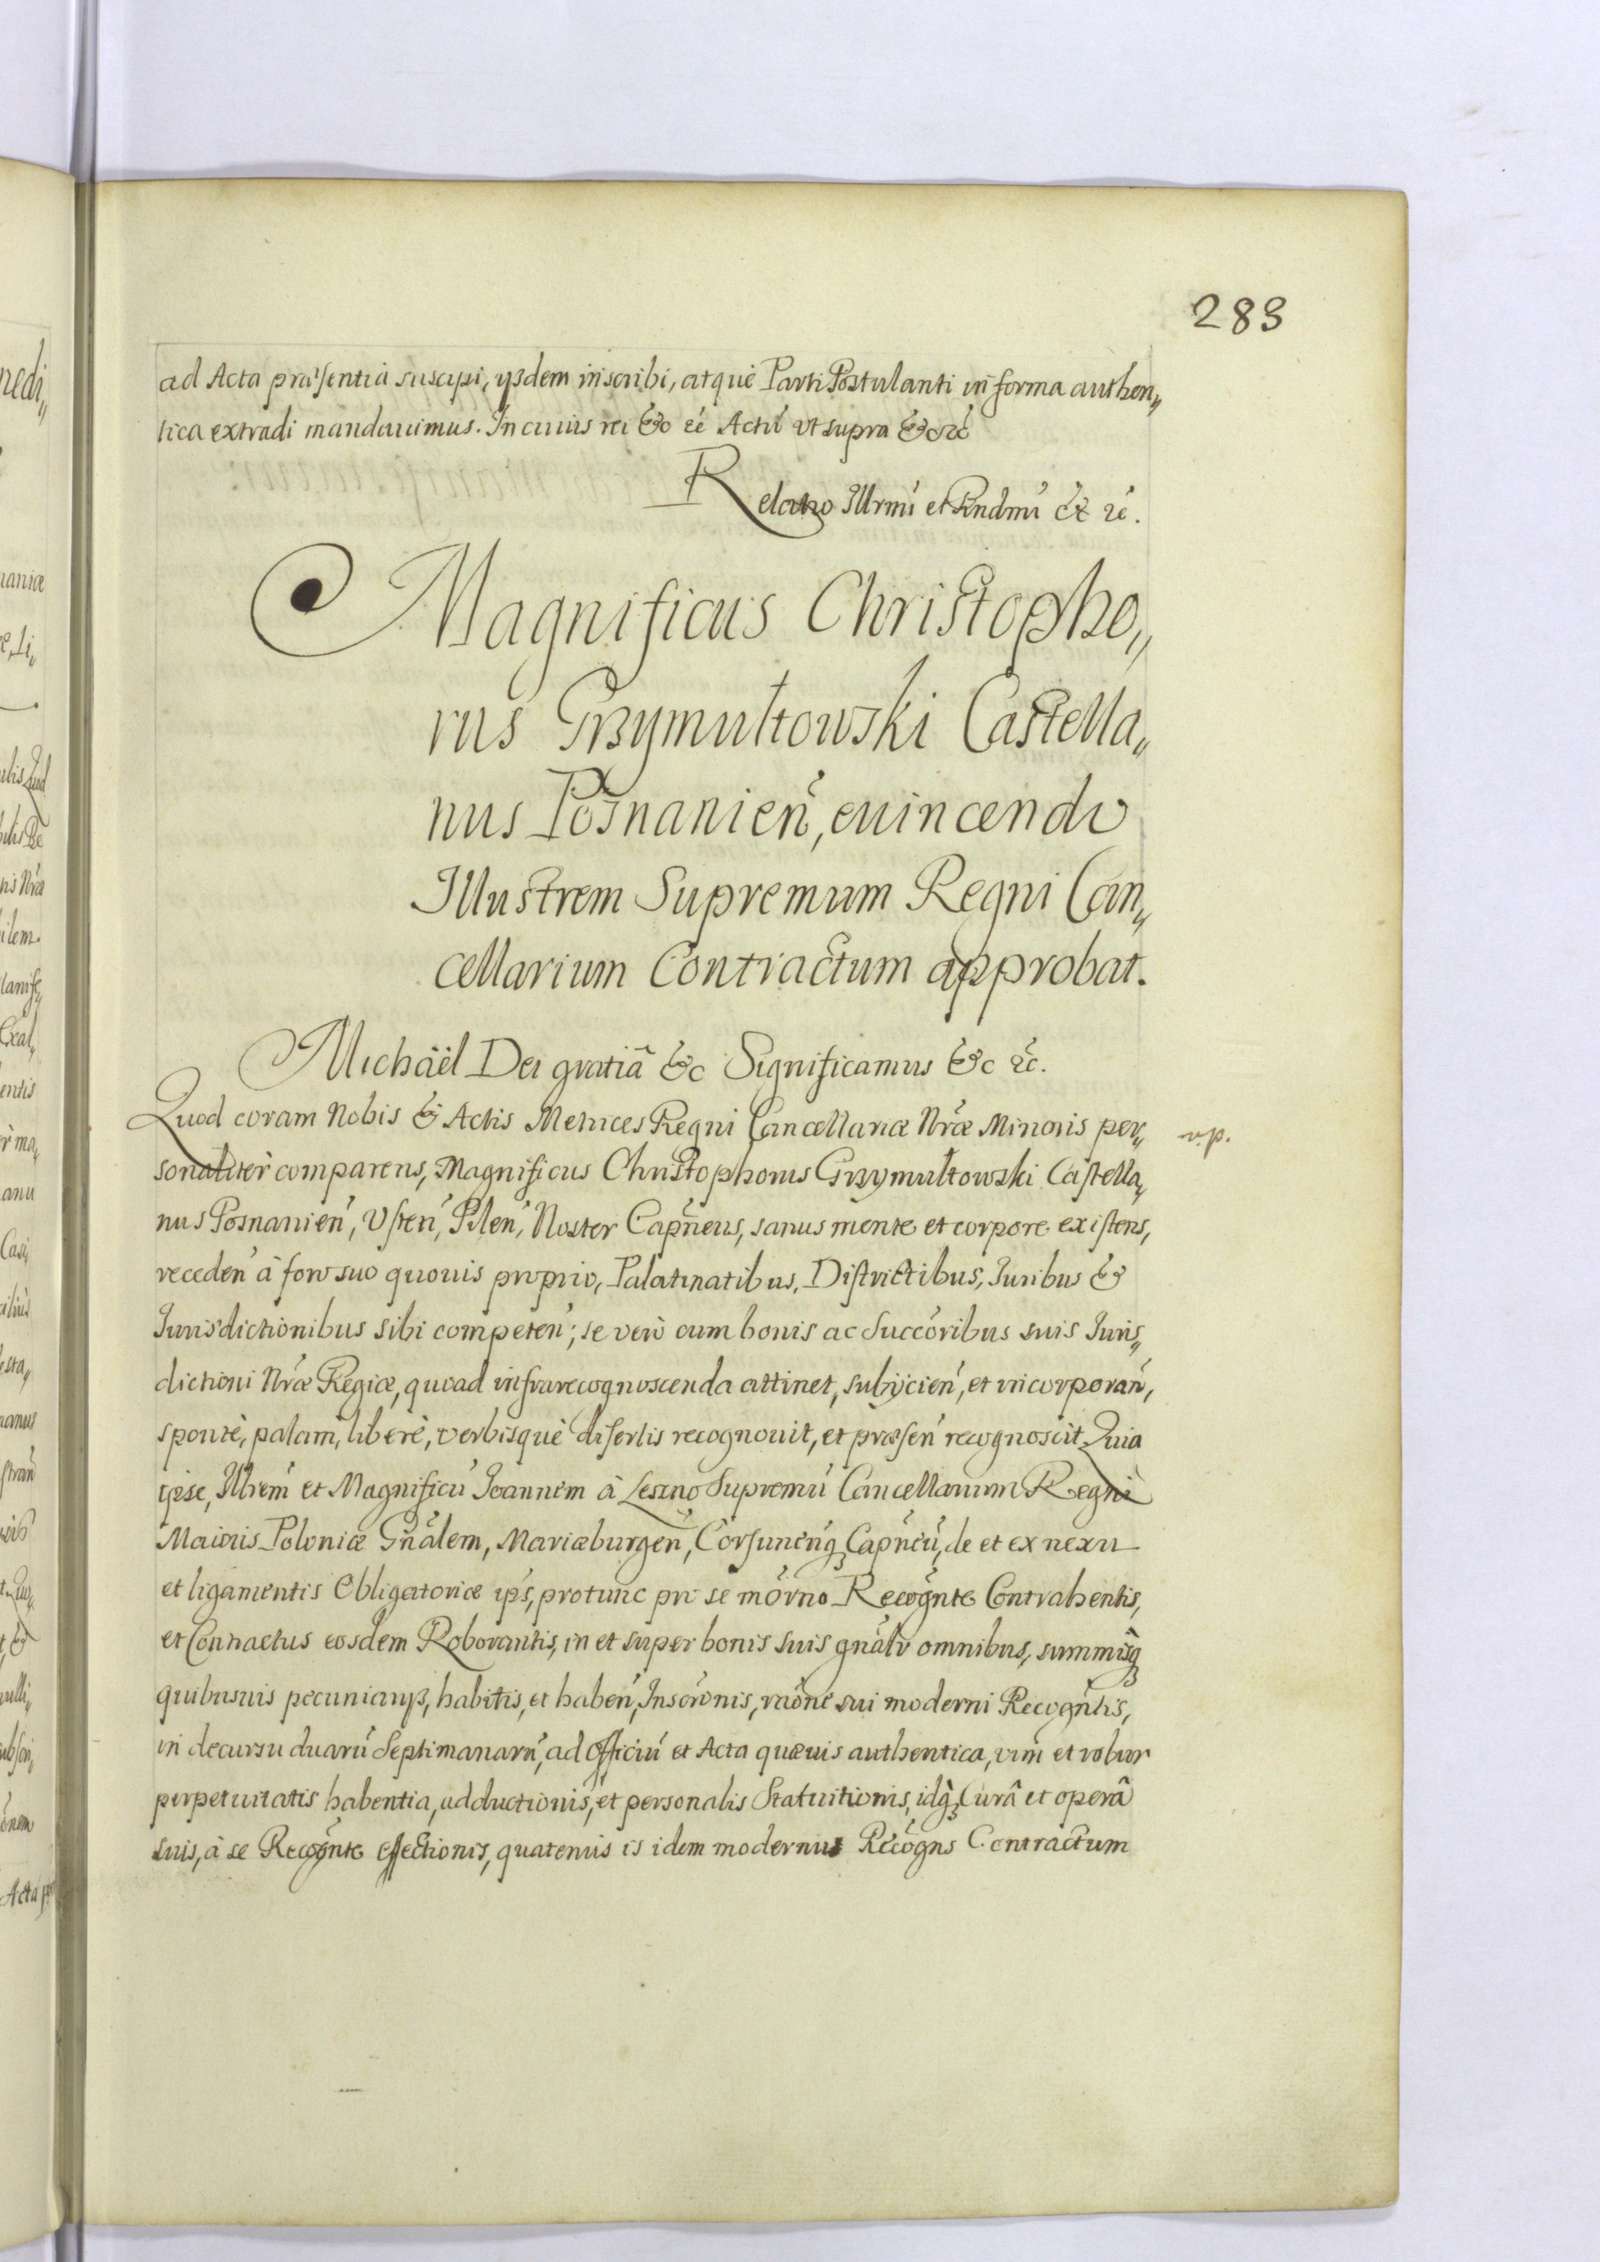 283
ad Acta præsentia suscipi, ysdem inscribi, atquè Parti Postulanti in forma authen„
tica extradi mandauimus. In cuius rei &c Actũ vt supra &c
Relatio Illrmi et Rndmi &c.
Magnificus Christopho„
rus Grzymułtowski Castella„
nus Posnanień, euincendo
Illustrem Supremum Regni Can„
cellarium Contractum approbat.
Michäël Dei gratiâ &c Significamus &c.
Quod coram Nobis & Actis Metrices Regni Cancellariæ Nræ Minoris per„
v.p.
sonaliter comparens, Magnificus Christophorus Grzymułtowski Castella„
nus Posnanień, Vsteń, Pileń, Noster Capneus, sanus mente et corpore existens,
recedeń à foro suo quouis proprio, Palatinatibus, Districtibus, Iuribus &
Iurisdictionibus sibi competeń; se verò cum bonis ac Succoribus suis Juris„
dictioni Nræ Regiæ, quoad infrarecognoscenda attinet, subijcień, et incorporań,
spontè, palam, liberè, verbisquè disertis recognouit, et præseń recognoscit. Quia
ipse, Illrem et Magnificũ Joannem à Leszno Supremũ Cancellarium Regni
Maioris Poloniæ Gñalem, Mariæburgeń, Corsuneńq Capneũ, de et ex nexu
et ligamentis Obligatoriæ ips, protunc pro se moŕno Recogñte Contrahentis,
et Contractus eosdem Roborantis, in et super bonis suis gñalr omnibus, summisq
quibusuis pecuniarijs, habitis, et habeń, Inscronis, raõne sui moderni Recogñtis,
in decursu duarũ Septimanarũ, ad Officiũ et Acta quæuis authentica, vim et robur
perpetuitatis habentia, adductionis, et personalis Statuitionis, idq Curâ et operâ
suis, à se Recogñte effectionis, quatenus is idem modernus Recogñs Contractum